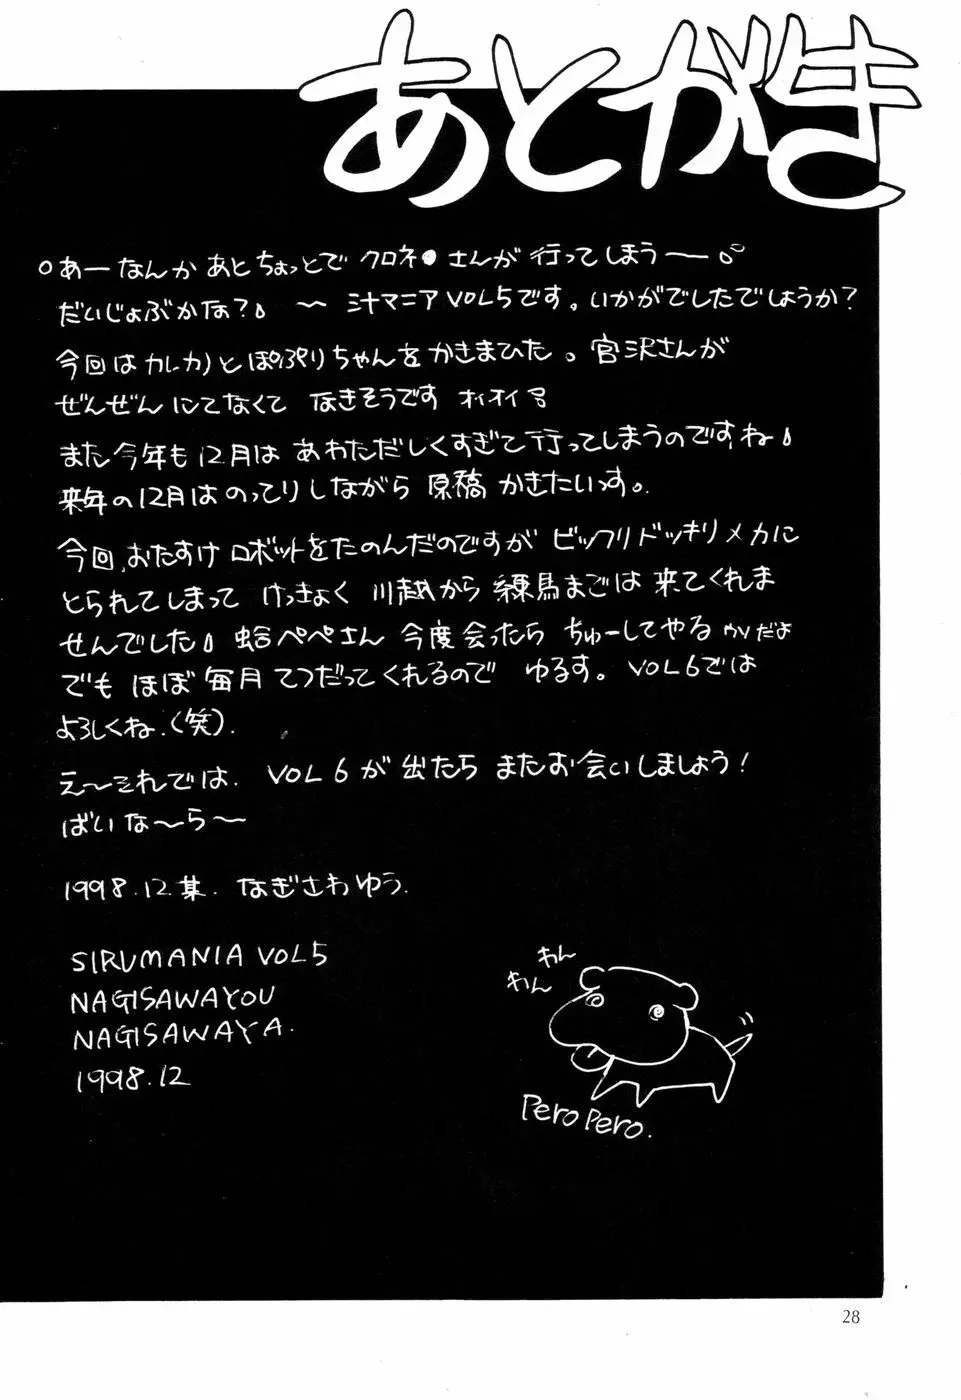 あとがき
あーなんかあとちょっとでクロネ●さんが行ってしまうー。
だいじょぶかな? 〜 汁マニアVOL5です。いかがでしたでしょうか?
今回はカレカノとぽぷりちゃんをかきまひた。宮沢さんが
ぜんぜんにてなくて なきそうです オイオイ
また今年も12月はあわただしくすぎて行ってしまうのですね
来年の12月はのってりしながら 原稿 かきたいっす。
今回、おたすけロボットをたのんだのですが ビックリドッキリメカに
とられてしまって けっきょく 川越から 練馬までは 来てくれま
せんでした 蛤ぺぺさん 今度会ったら ちゅーしてやる だよ
でも ほぼ毎月 てつだってくれるので ゆるす。VOL6では
よろしくね.(笑).
え〜それでは. VOL6が 出たら またお会いしましょう!
ばいな〜ら〜
1998.12.某. なぎさわゆう.
SIRUMANIA VOL5
NAGISAWAYOU
NAGISAWAYA.
1998.12
わん
わん
Pero Pero.
28